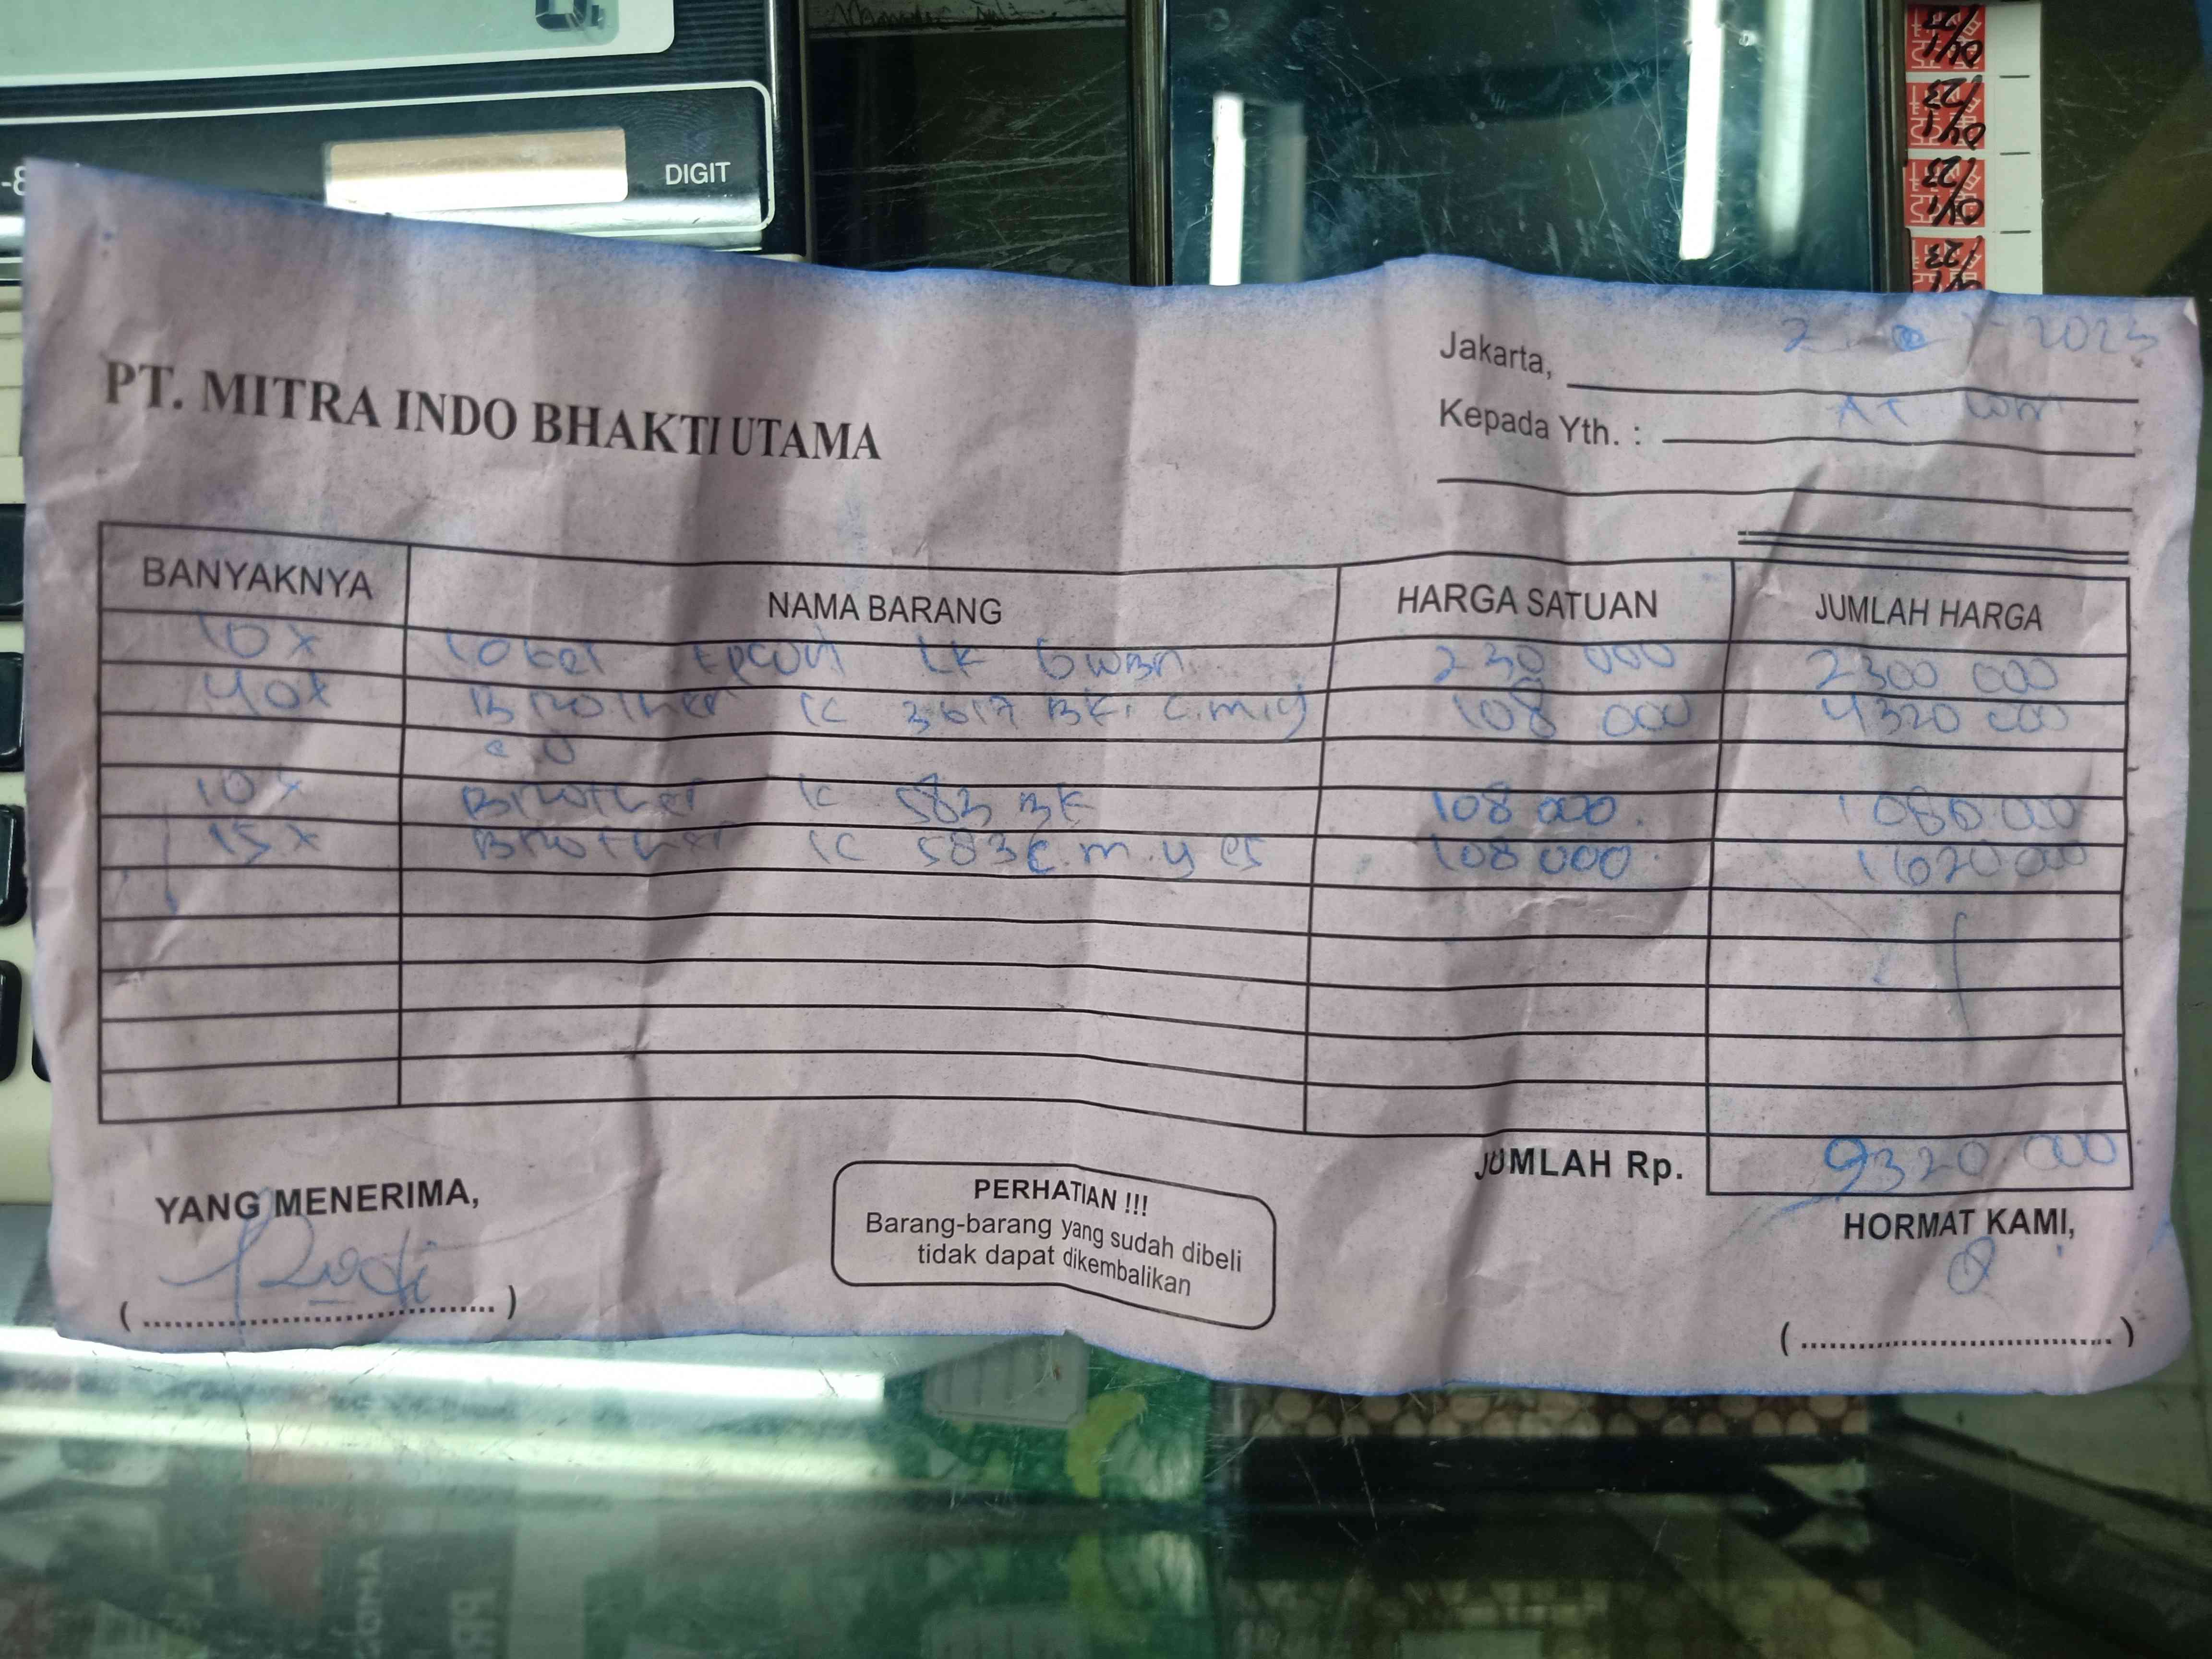 DIGIT
PT. MITRA INDO BHAKTI UTAMA
Jakarta, 2023
Kepada Yth. : AT com
BANYAKNYA NAMA BARANG HARGA SATUAN JUMLAH HARGA
10 x Label Epson LK 230 000 2300 000
40x Brother lc 3617 BK. C.M.Y 108 000 4320 000
10 x Brother lc 583 BK 108 000. 1 080 000
15 x Brother lc 583 C.M.Y 108 000. 1620 000
JUMLAH Rp. 9320.000
YANG MENERIMA,
Rudi
(..............................)
PERHATIAN !!!
Barang-barang yang sudah dibeli
tidak dapat dikembalikan
HORMAT KAMI,
(..............................)